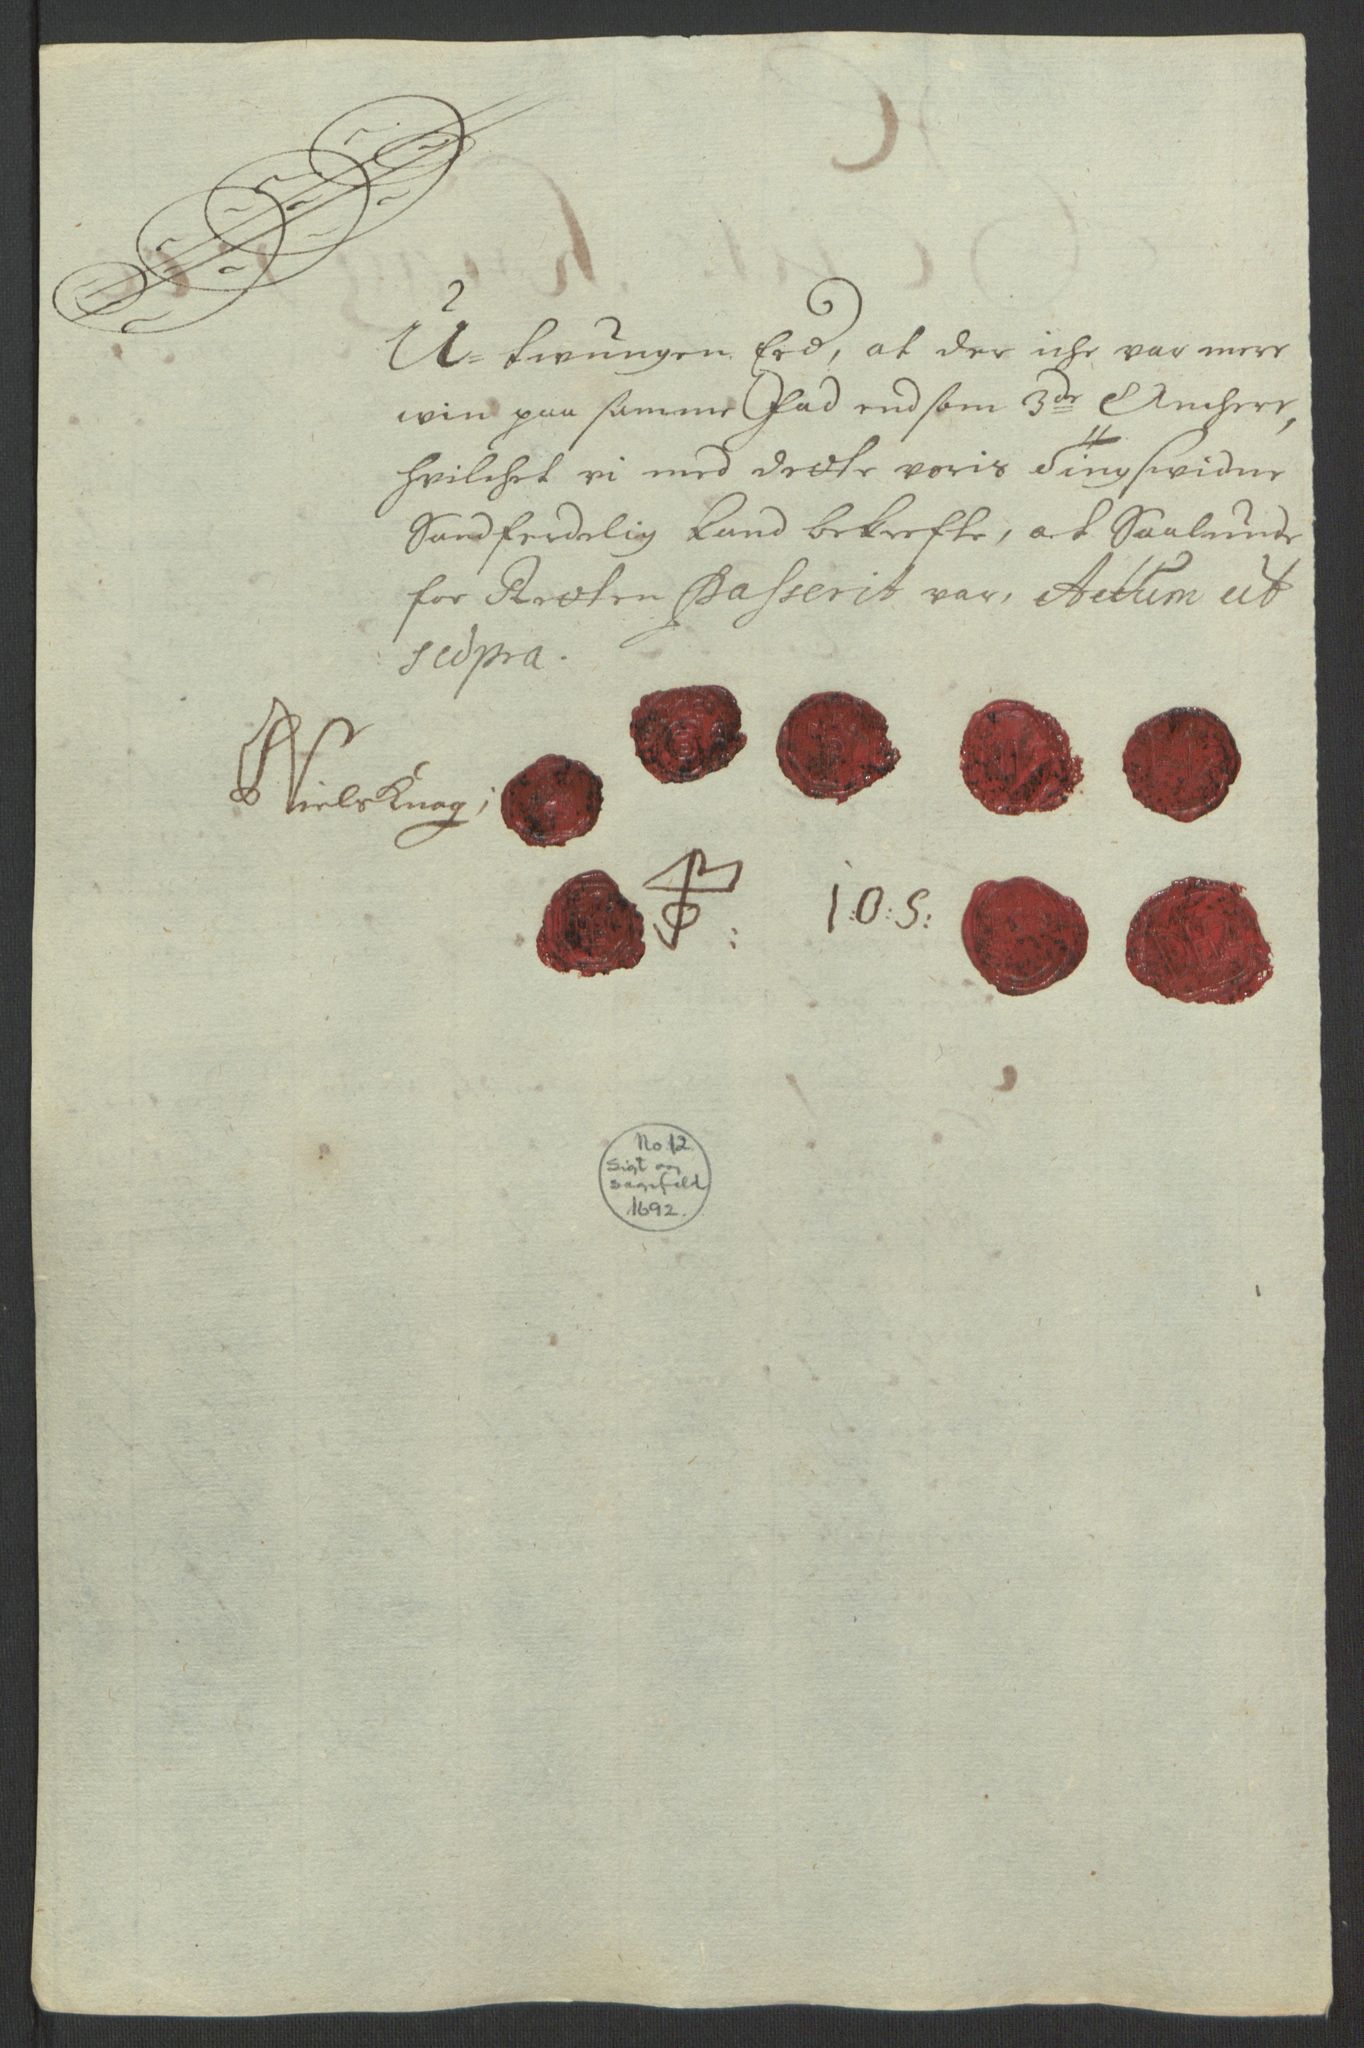 U-twungen Eed, at der iche var mere
win paa samme Fad end som 3de Anchere,
hvilchet vi med dette voris Tingswidne
Sandferdelig kand bekrefte, at Saalunde
for Retten Passerit var, Actum ut
supra.
Niels Knag,
I:O:S:
No 12.
Sigt og
sagefald
1692.